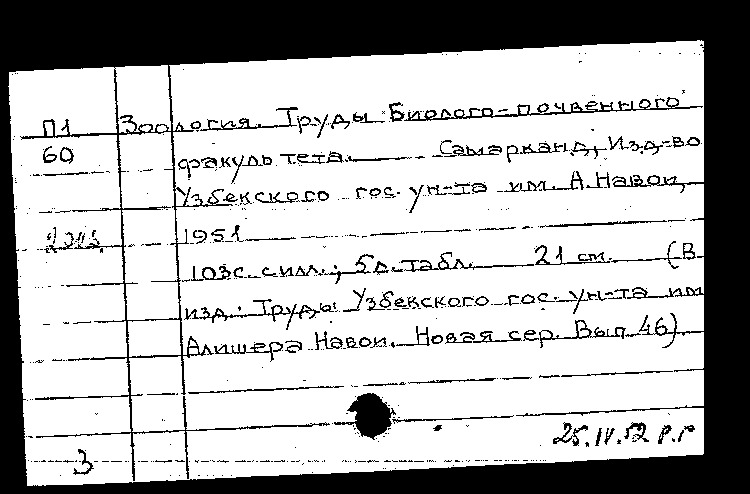 П1 Зоология. Труды Биолого-почвенного
60 факультета. Самарканд, Изд-во
Узбекского гос. ун-та им. А. Навои,
2 экз. 1951
103с. с илл.; 5л. табл. 21 см. (В
изд.: Труды Узбекского гос. ун-та им
Алишера Навои. Новая сер. Вып 46)
25.IV.52 р.г
З